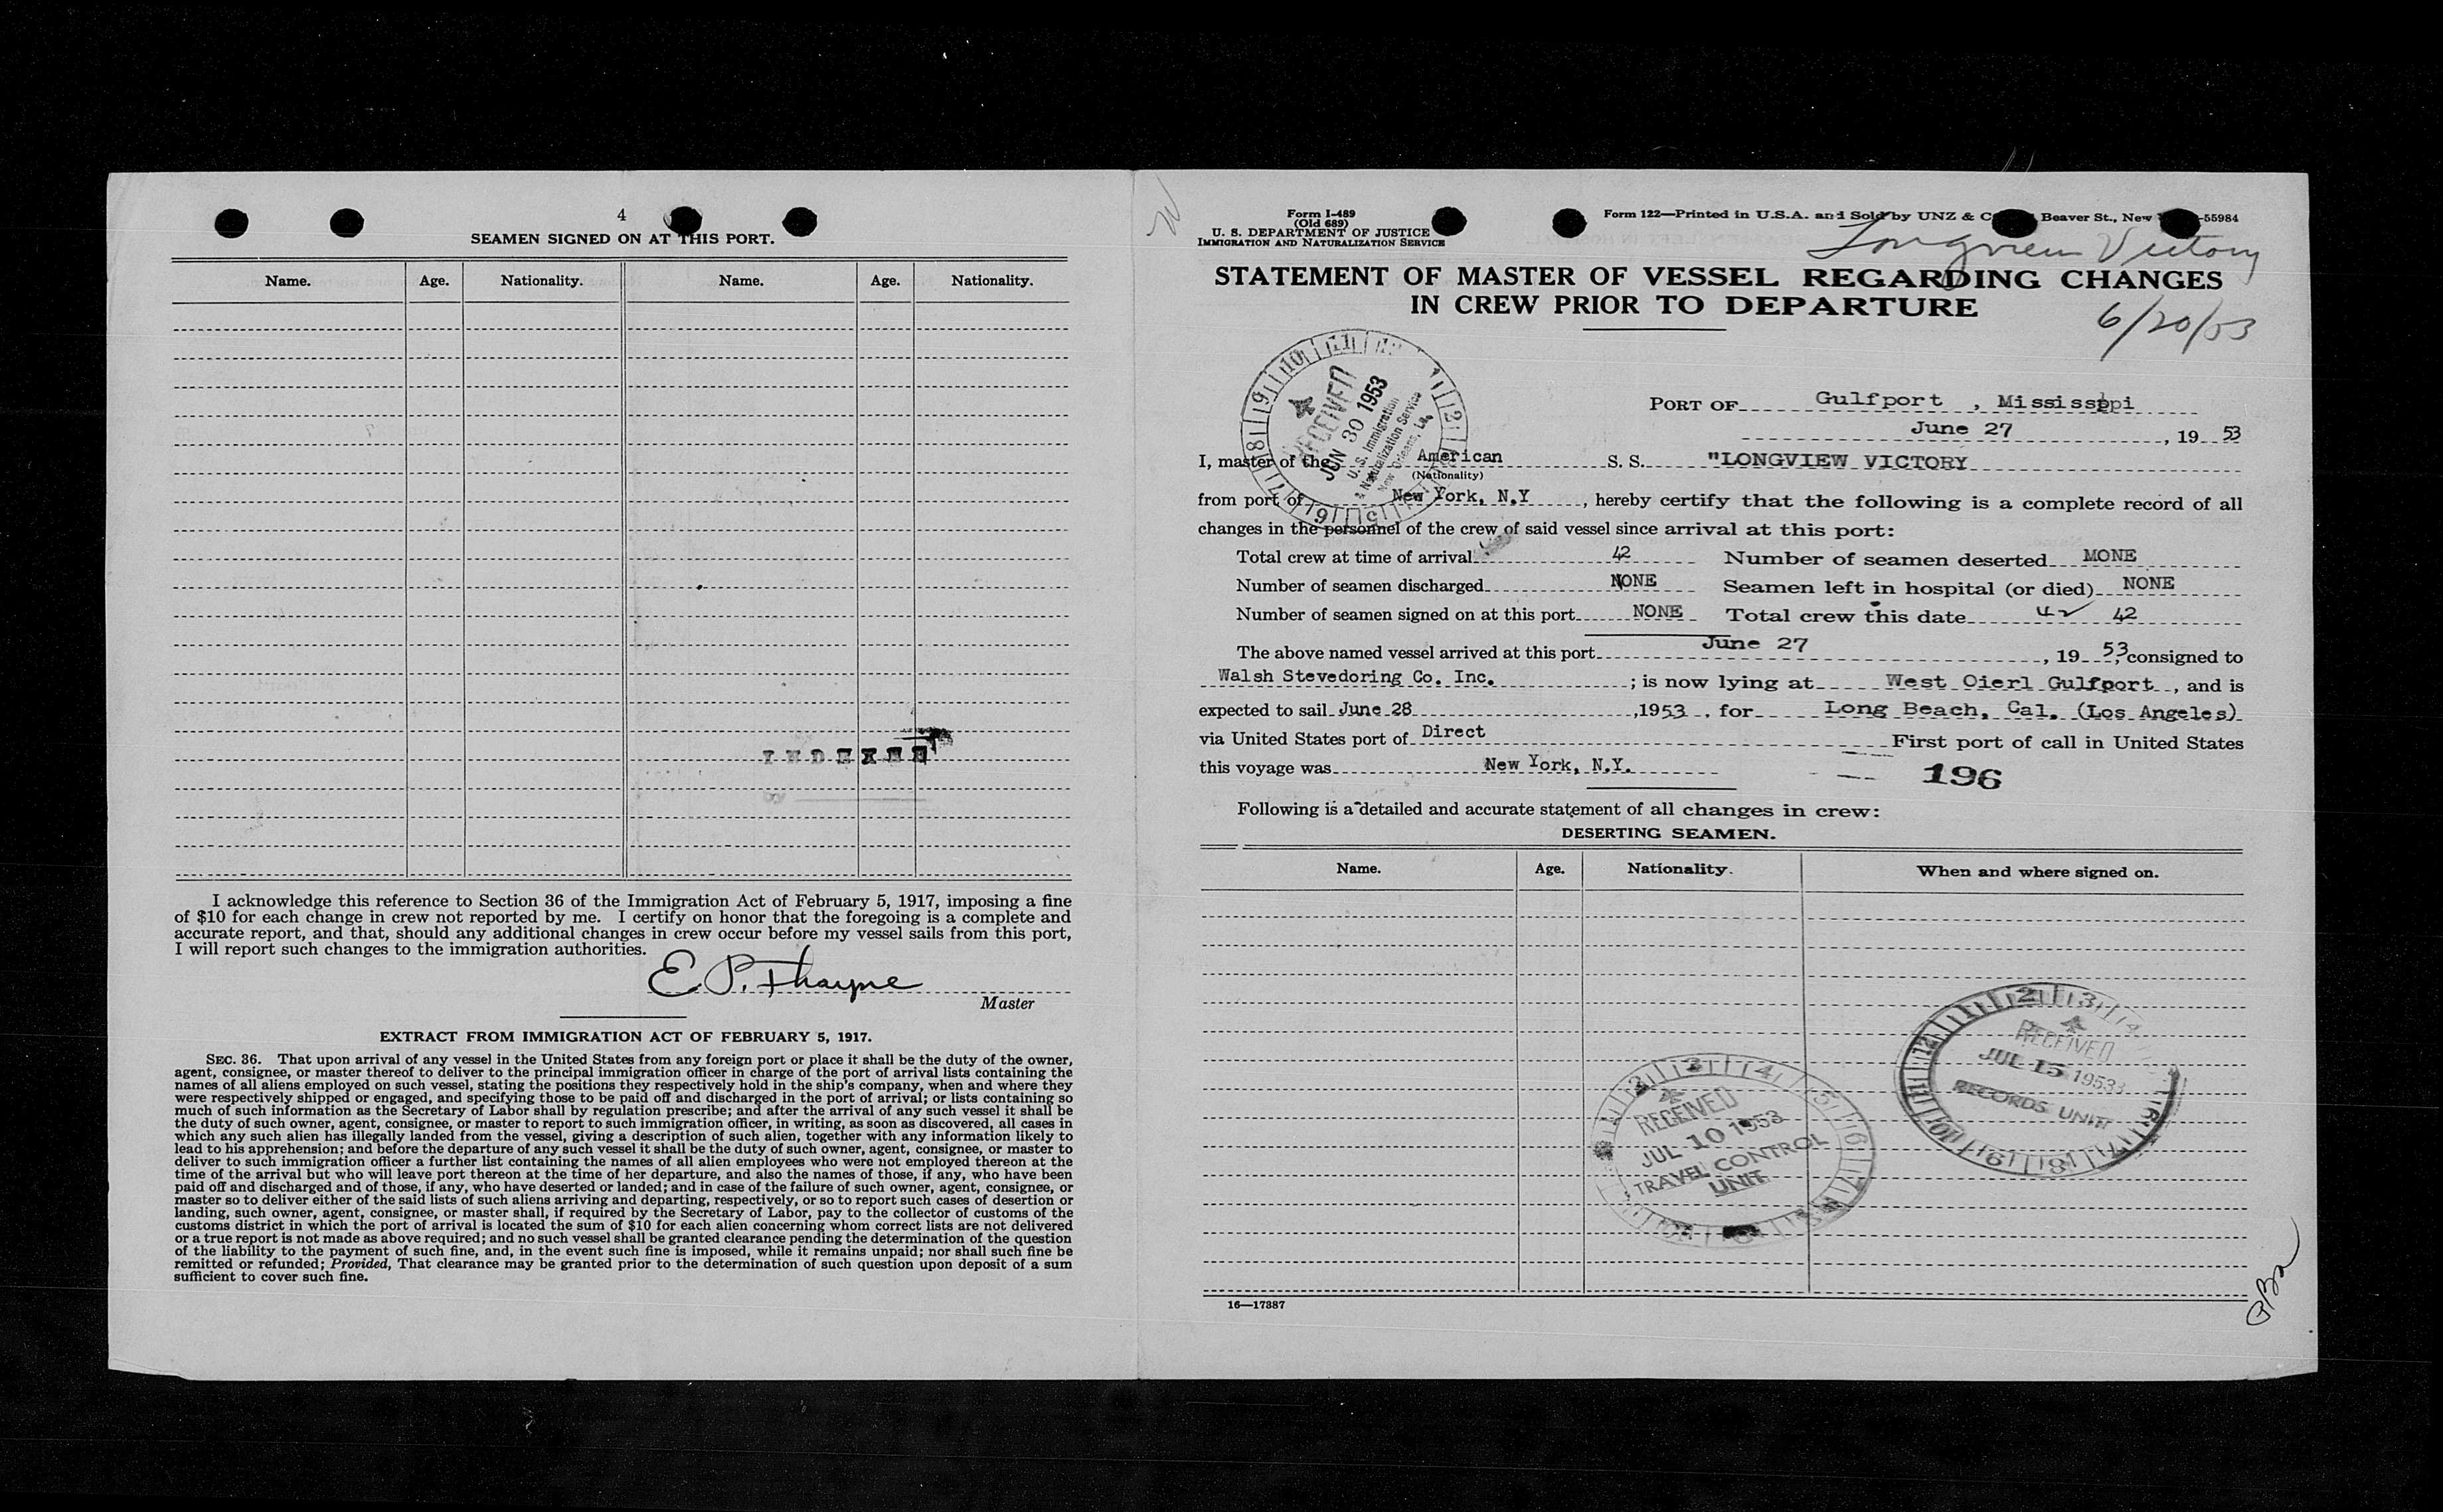 4
SEAMEN SIGNED ON AT THIS PORT.
Name. Age. Nationality. Name. Age. Nationality.
INDEXED
by
I acknowledge this reference to Section 36 of the Immigration Act of February 5, 1917, imposing a fine
of $10 for each change in crew not reported by me. I certify on honor that the foregoing is a complete and
accurate report, and that, should any additional changes in crew occur before my vessel sails from this port,
I will report such changes to the immigration authorities.
E P. Thayne
Master
EXTRACT FROM IMMIGRATION ACT OF FEBRUARY 5, 1917.
SEC. 36. That upon arrival of any vessel in the United States from any foreign port or place it shall be the duty of the owner,
agent, consignee, or master thereof to deliver to the principal immigration officer in charge of the port of arrival lists containing the
names of all aliens employed on such vessel, stating the positions they respectively hold in the ship's company, when and where they
were respectively shipped or engaged, and specifying those to be paid off and discharged in the port of arrival; or lists containing so
much of such information as the Secretary of Labor shall by regulation prescribe; and after the arrival of any such vessel it shall be
the duty of such owner, agent, consignee, or master to report to such immigration officer, in writing, as soon as discovered, all cases in
which any such alien has illegally landed from the vessel, giving a description of such alien, together with any information likely to
lead to his apprehension; and before the departure of any such vessel it shall be the duty of such owner, agent, consignee, or master to
deliver to such immigration officer a further list containing the names of all alien employees who were not employed thereon at the
time of the arrival but who will leave port thereon at the time of her departure, and also the names of those, if any, who have been
paid off and discharged and of those, if any, who have deserted or landed; and in case of the failure of such owner, agent, consignee, or
master so to deliver either of the said lists of such aliens arriving and departing, respectively, or so to report such cases of desertion or
landing, such owner, agent, consignee, or master shall, if required by the Secretary of Labor, pay to the collector of customs of the
customs district in which the port of arrival is located the sum of $10 for each alien concerning whom correct lists are not delivered
or a true report is not made as above required; and no such vessel shall be granted clearance pending the determination of the question
of the liability to the payment of such fine, and, in the event such fine is imposed, while it remains unpaid; nor shall such fine be
remitted or refunded; Provided, That clearance may be granted prior to the determination of such question upon deposit of a sum
sufficient to cover such fine.
Form I-489
(Old 689)
U. S. DEPARTMENT OF JUSTICE
IMMIGRATION AND NATURALIZATION SERVICE
Form 122—Printed in U.S.A. and Sold by UNZ & C Beaver St., New -55984
Longview Victory
STATEMENT OF MASTER OF VESSEL REGARDING CHANGES
IN CREW PRIOR TO DEPARTURE
6/20/53
RECEIVED
JUN 30 1953
U. S. Immigration
& Naturalization Service
New Orleans, La.
PORT OF Gulfport , Mississppi
June 27 , 19 53
I, master of the American S. S. "LONGVIEW VICTORY
(Nationality)
from port of New York, N.Y , hereby certify that the following is a complete record of all
changes in the personnel of the crew of said vessel since arrival at this port:
Total crew at time of arrival 42 Number of seamen deserted MONE
Number of seamen discharged NONE Seamen left in hospital (or died) NONE
Number of seamen signed on at this port NONE Total crew this date 42 42
The above named vessel arrived at this port June 27 , 19 53, consigned to
Walsh Stevedoring Co. Inc. ; is now lying at West Oierl Gulfport , and is
expected to sail June 28 ,1953 , for Long Beach, Cal. (Los Angeles)
via United States port of Direct First port of call in United States
this voyage was New York, N.Y.
196
Following is a detailed and accurate statement of all changes in crew:
DESERTING SEAMEN.
Name. Age. Nationality. When and where signed on.
RECEIVED
JUL 15 1953
RECORDS UNIT
RECEIVED
JUL 10 1953
TRAVEL CONTROL
UNIT
16—17887